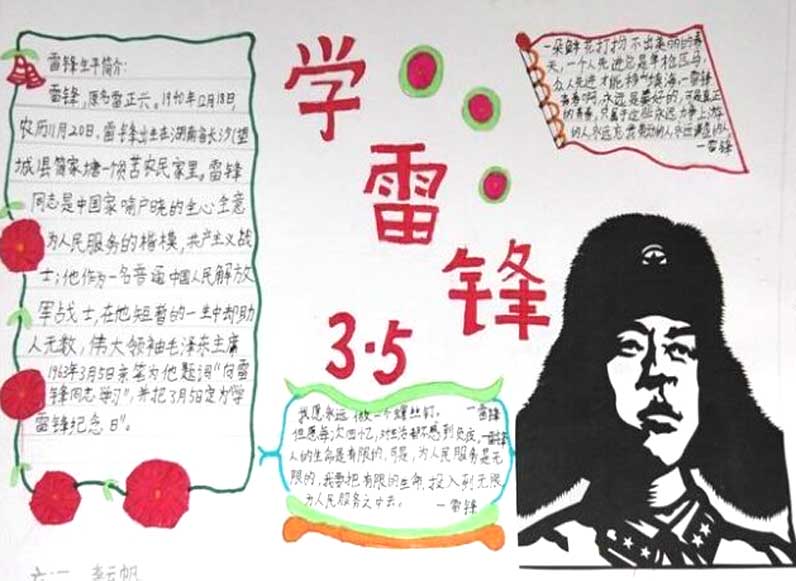 雷锋生平简介:
雷锋,原名雷正兴。1940年12月18日,
农历11月20日,雷锋出生在湖南省长沙(望
城)县简家塘一个贫苦农民家里。雷锋
同志是中国家喻户晓的全心全意
为人民服务的楷模,共产主义战
士;他作为一名普通中国人民解放
军战士,在他短暂的一生中却助
人无数,伟大领袖毛泽东主席
1963年3月5日亲笔为他题词“向雷
锋同志学习”,并把3月5日定为“学
雷锋纪念日”。
学
雷
锋
3·5
一朵鲜花打扮不出美丽的春
天,一个人先进总是单枪匹马,
众人先进才能移山填海。—雷锋
青春啊,永远是美好的,可是真正
的青春,只属于这些永远力争上游
的人,永远忘我劳动的人,永远谦虚的人
—雷锋
我愿永远做一个螺丝钉。 —雷锋
但愿每次回忆,对生活都不感到负疚。—雷锋
人的生命是有限的,可是,为人民服务是无
限的,我要把有限的生命,投入到无限
为人民服务之中去。 —雷锋
六·一 李云帆